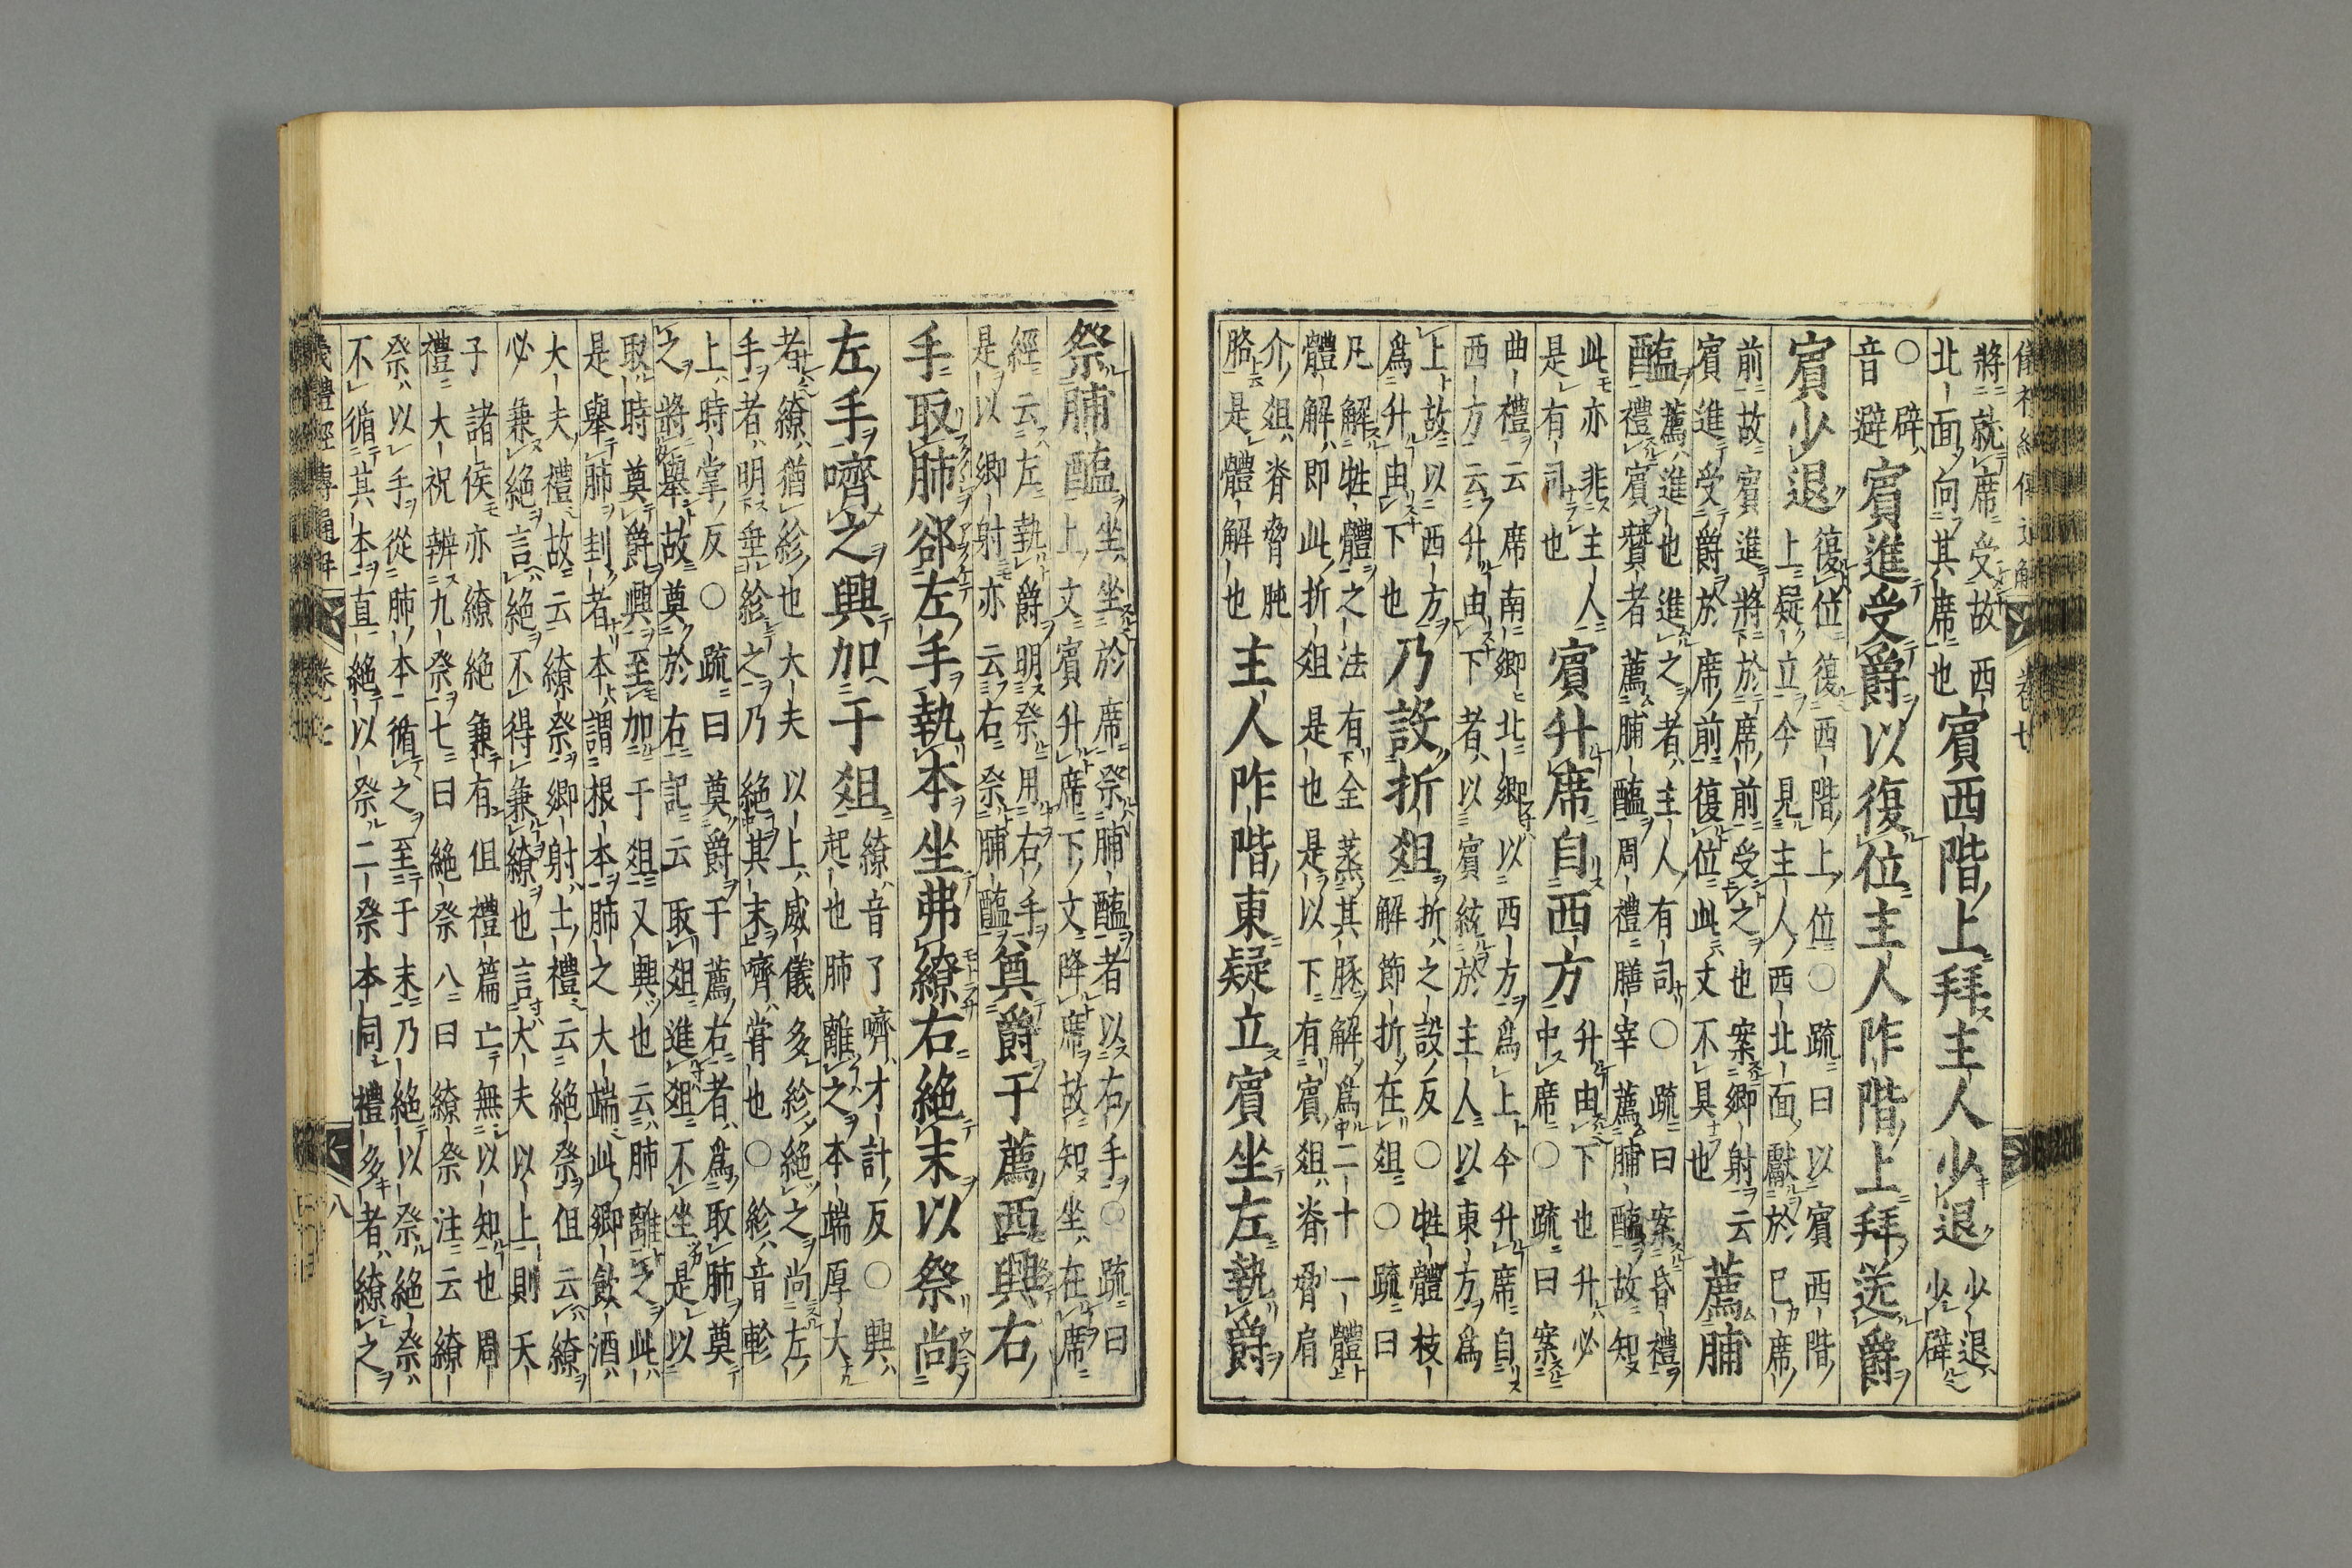 儀禮經傳通解　卷七
將就席受故西
北面向其席也
賓西階上拜主人少退
少退
少辟
○辟
音避
賓進受爵以復位主人阼階上拜送爵
賓少退
復位復西階上位○疏曰以賓西階
上疑立今見主人西北面獻於己席
前故賓進將於席前受之也案鄉射云
賓進受爵於席前復位此文不具也
薦脯
醢
薦進也進之者主人有司○疏曰案昏禮
禮賓贊者薦脯醢周禮膳宰薦脯醢故知
此亦非主人
是有司也
賓升席自西方
升由下也升必
中席○疏曰案
曲禮云席南鄉北鄉以西方爲上今升席自
西方云升由下者以賓統於主人以東方爲
上故以西方
爲升由下也
乃設折俎
折之設反○牲體枝
解節折在俎○疏曰
凡解牲體之法有全蒸其豚解爲二十一體
體解即此折俎是也是以下有賓俎脊脅肩
介俎脊脅肫
胳是體解也
主人阼階東疑立賓坐左執爵
祭脯醢
坐坐於席祭脯醢者以右手○疏曰
上文賓升席下文降席故知坐在席
經云左執爵明祭用右手
是以鄉射亦云右祭脯醢
奠爵于薦西興右
手取肺郤左手執本坐弗繚右絶末以祭尚
左手嚌之興加于俎
繚音了嚌才計反○興
起也肺離之本端厚大
者繚猶紾也大夫以上威儀多紾絶之尚左
手者明垂紾之乃絶其末嚌嘗也○紾音軫
上時掌反○疏曰奠爵于薦右者爲取肺奠
之將舉故奠於右記云取俎進俎不坐是以
取時奠爵興至加于俎又興也云肺離之此
是舉肺刲者本謂根本肺之大端此鄉飲酒
大夫禮故云繚祭鄉射士禮云絶祭但云繚
必兼絶言絶不得兼繚也言大夫以上則天
子諸侯亦繚絶兼有但禮篇亡無以知也周
禮大祝辨九祭七曰絶祭八曰繚祭注云繚
祭以手從肺本循之至于末乃絶以祭絶祭
不循其本直絶以祭二祭本同禮多者繚之
儀禮經傳通解　卷七　八